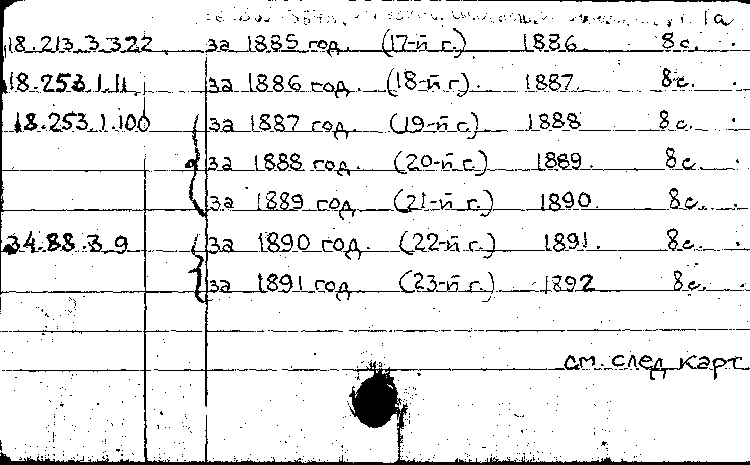 18.213.3.322 за 1885 год. (17-й г.) 1886. 8 с.
18.253.1.11 за 1886 год. (18-й г.) 1887. 8 с.
18.253.1.100 за 1887 год. (19-й г.) 1888 8 с.
за 1888 год. (20-й г.) 1889. 8 с.
за 1889 год. (21-й г.) 1890. 8 с.
34.88.3.9 за 1890 год. (22-й г.) 1891. 8 с.
за 1891 год. (23-й г.) 1892 8 с.
см. след карт